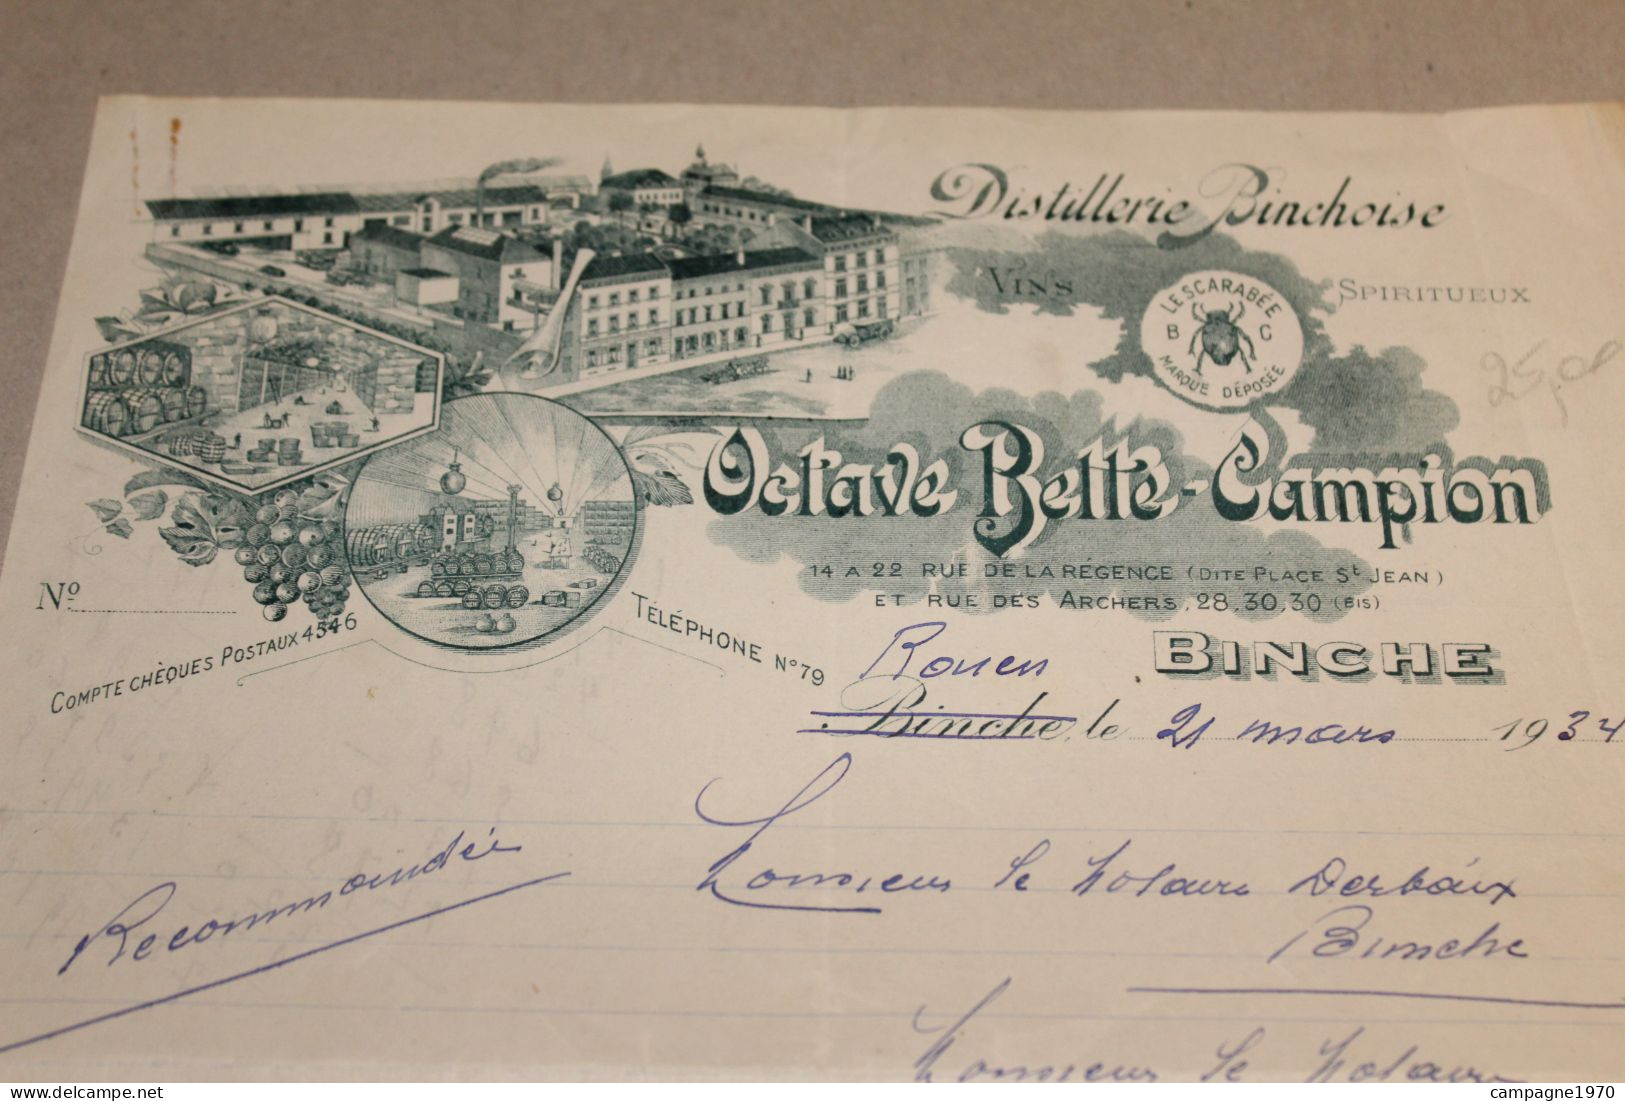 Distillerie Binchoise
Vins
Spiritueux
LE SCARABÉE
B C
MARQUE DÉPOSÉE
Octave Bette-Campion
14 A 22 RUE DE LA RÉGENCE (DITE PLACE St JEAN)
ET RUE DES ARCHERS, 28, 30, 30 (BIS)
BINCHE
Nº
COMPTE CHÈQUES POSTAUX 4546
TÉLÉPHONE Nº 79
Rouen
Binche, le 21 mars 1934
Recommandée
Monsieur le Notaire Derbaix
Binche
Monsieur le Notaire
delcampe.net
campagne1970